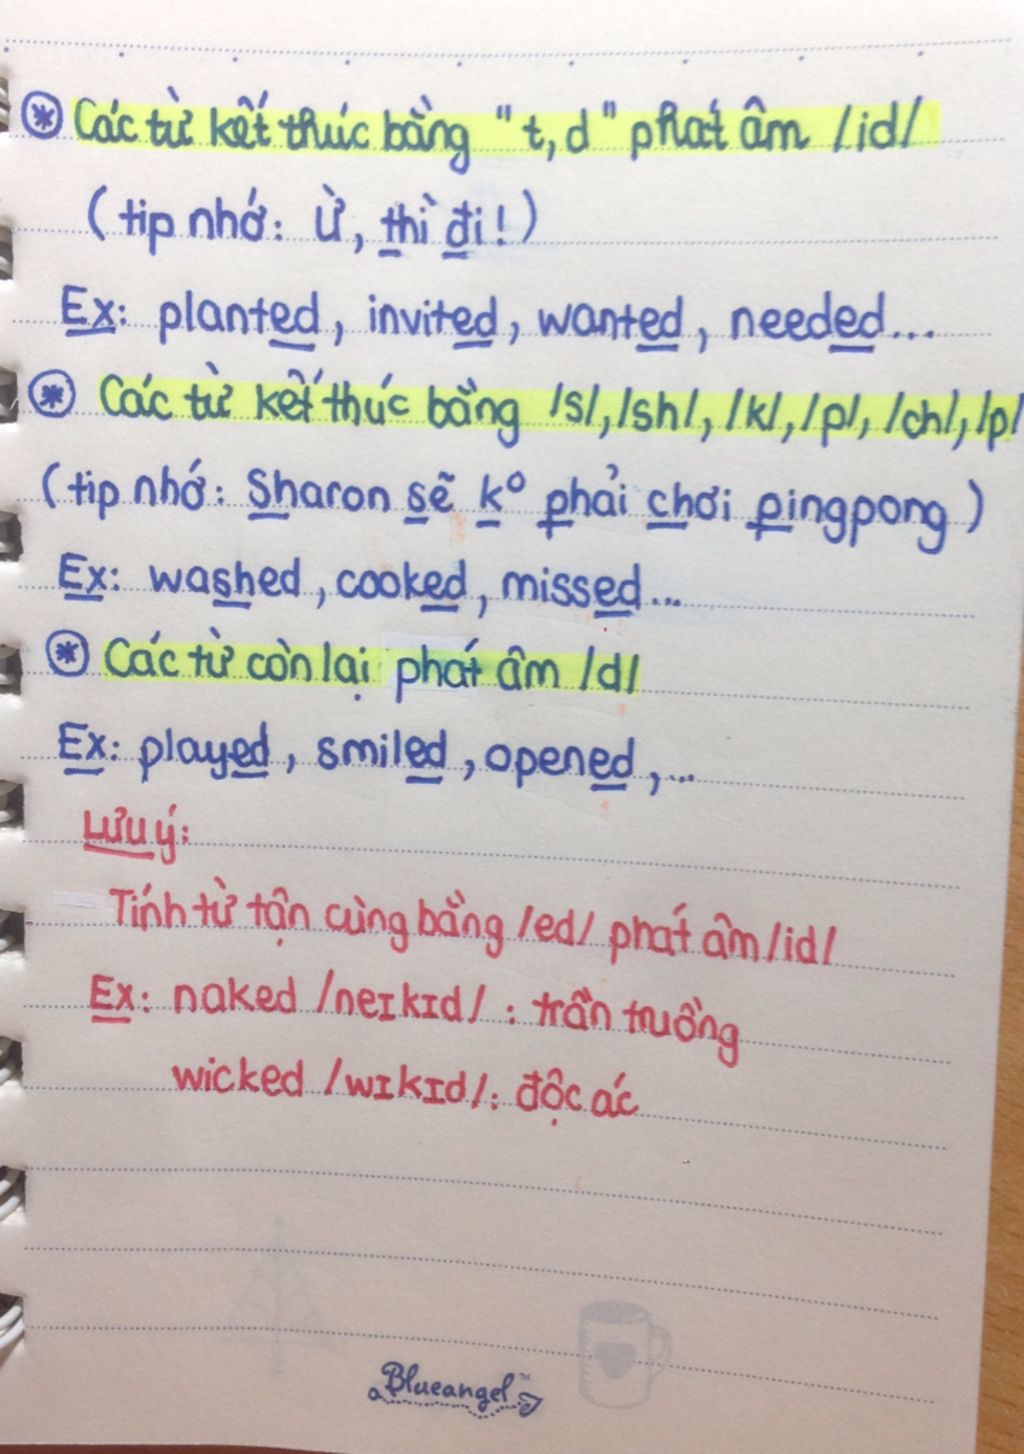 Các từ kết thúc bằng "t, d" phát âm /id/
(tip nhớ: Ừ, thì đi!)
Ex: planted, invited, wanted, needed...
Các từ kết thúc bằng /s/, /sh/, /k/, /p/, /ch/, /p/
(tip nhớ: Sharon sẽ kº phải chơi pingpong)
Ex: washed, cooked, missed...
Các từ còn lại phát âm /d/
Ex: played, smiled, opened,...
Lưu ý:
Tính từ tận cùng bằng /ed/ phát âm /id/
Ex: naked /neɪkɪd/: trần truồng
wicked /wɪkɪd/: độc ác
Blueangel™